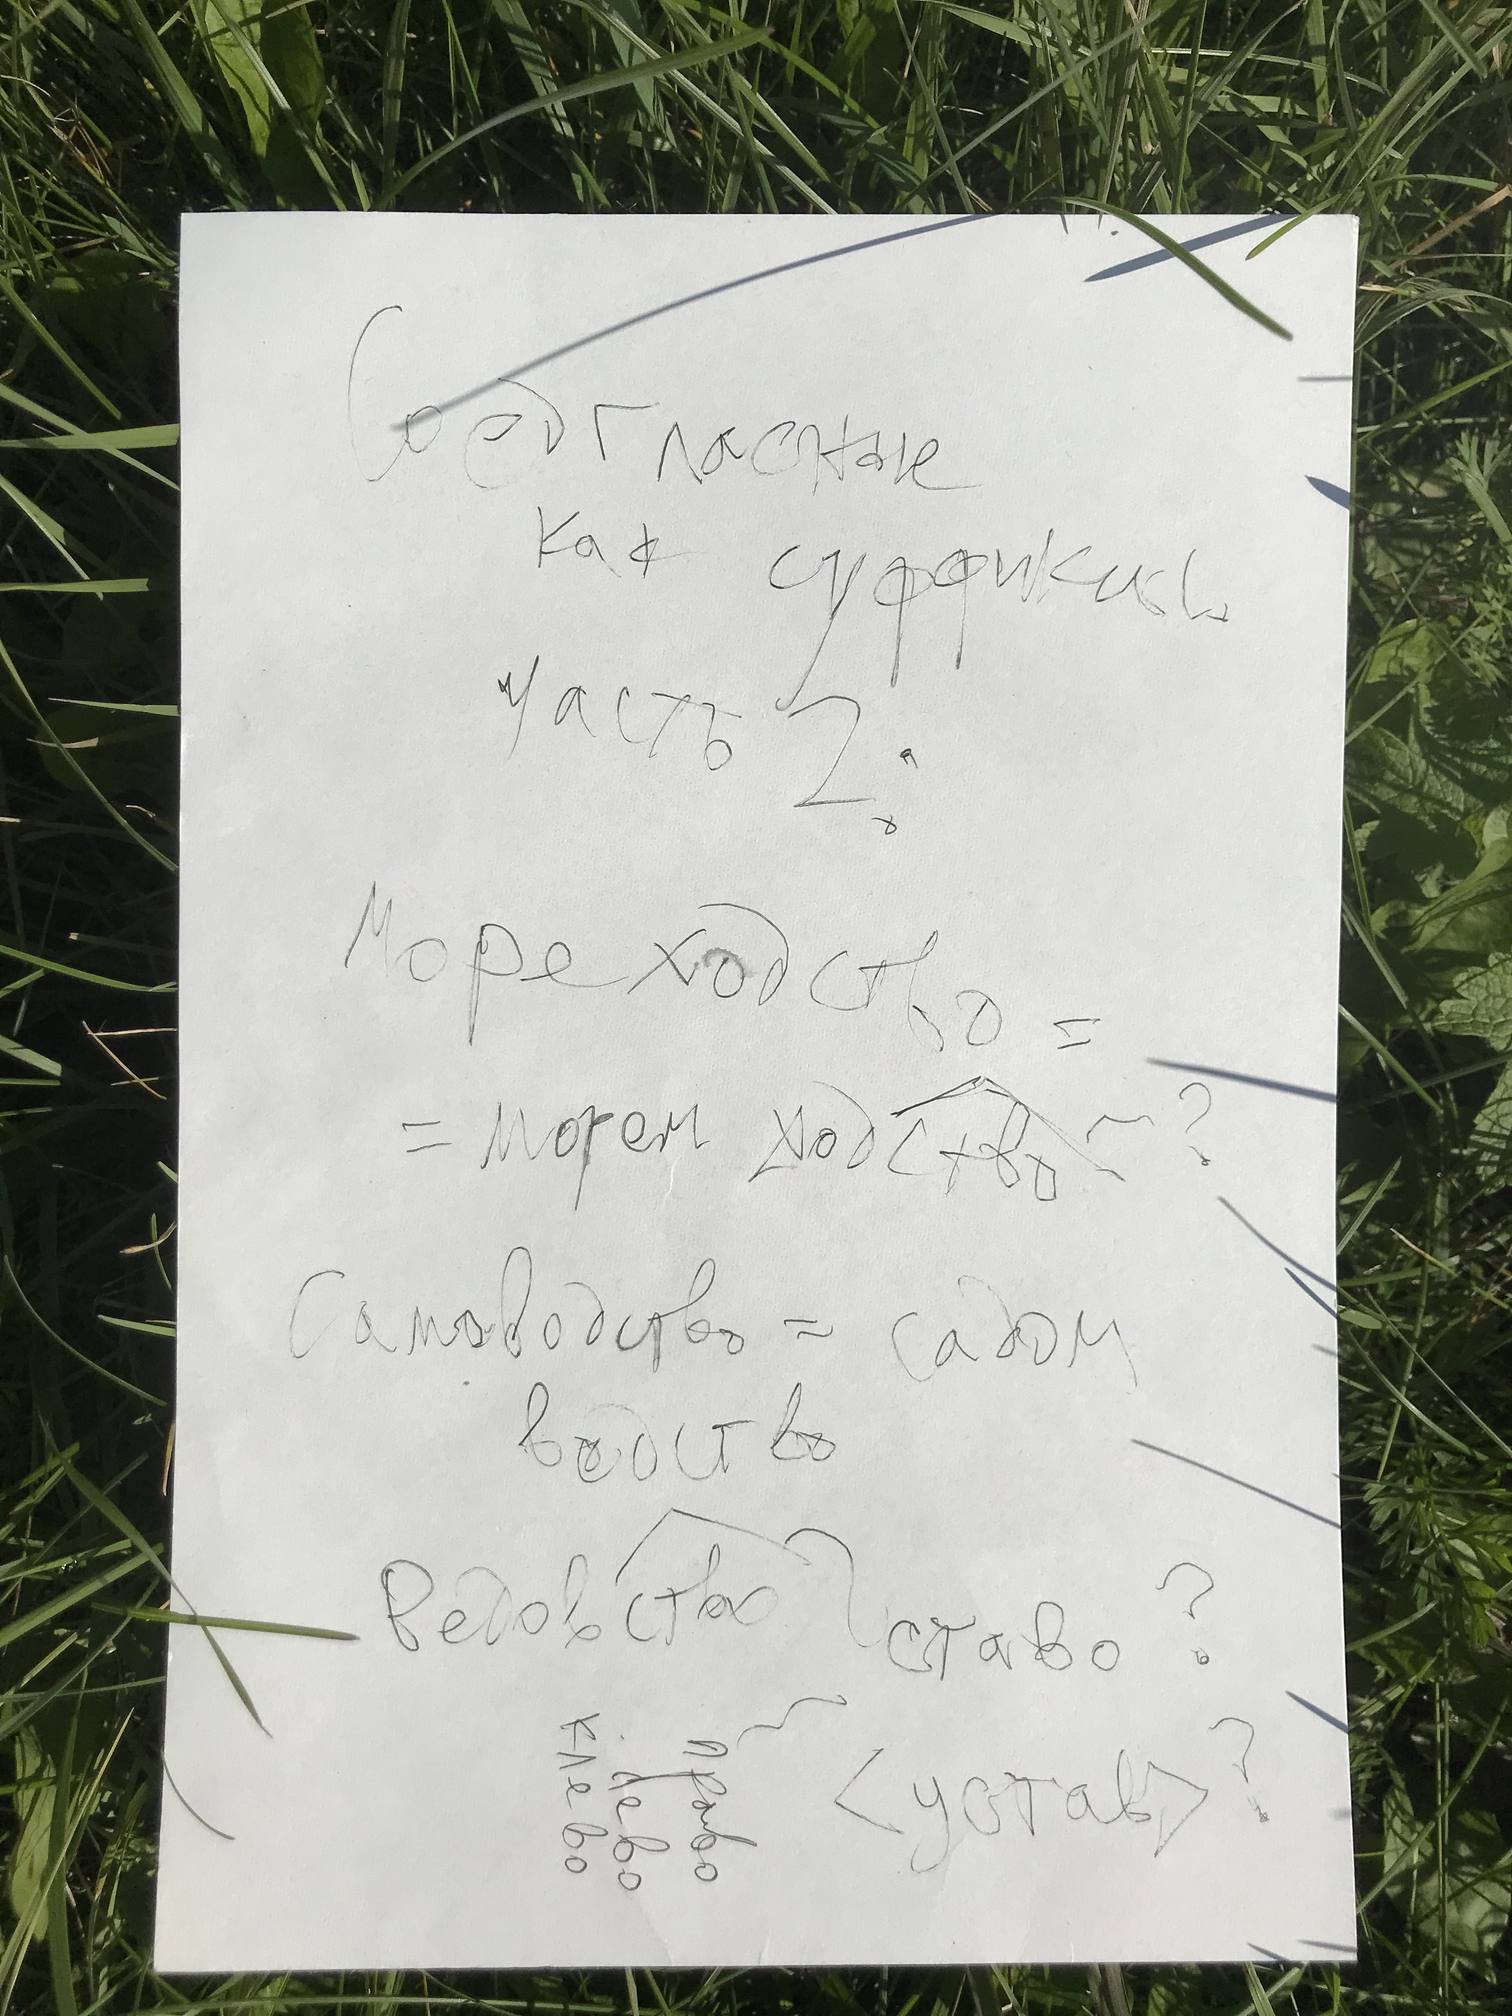 Соедгласные
как суффиксы
часть 2:
Мореходство =
= морем ходство ~ ?
Самоводство = садом
водство
Ведовство ~ ставо ?
право ~ <устав> ?
лево
клево